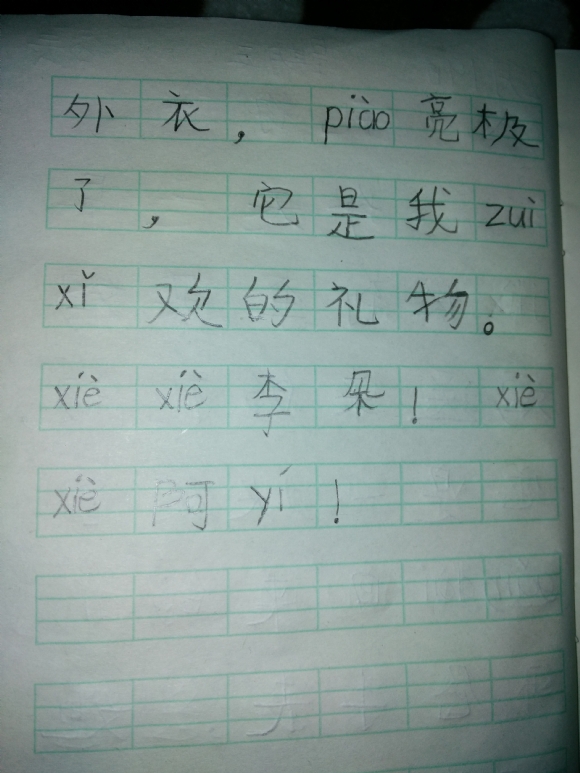 外衣，piào亮极
了，它是我zuì
xǐ欢的礼物。
xiè xiè李朵！xiè
xiè阿yí！